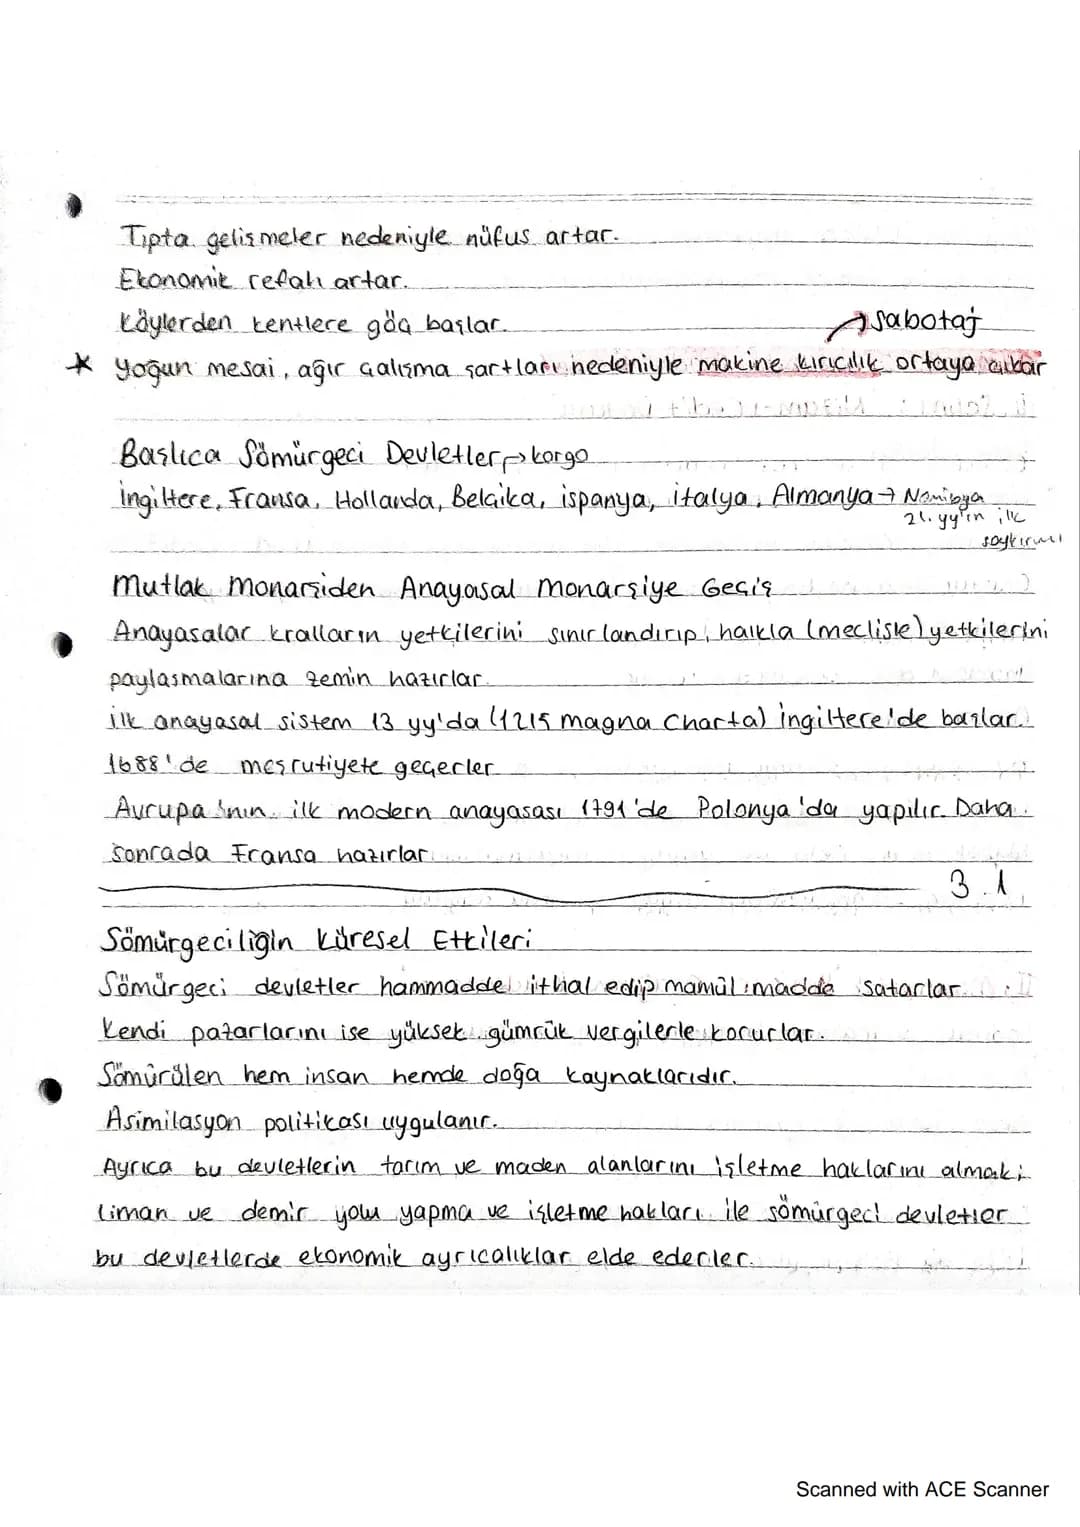 Tıpta gelişmeler nedeniyle nüfus artar.
Ekonomik refah artar.
Köylerden kentlere göç başlar.
→ sabotaj
* Yoğun mesai, ağır çalışma şartları nedeniyle makine kırıcılık ortaya çıkar
Başlıca Sömürgeci Devletler → korgo
İngiltere, Fransa, Hollanda, Belçika, ispanya, italya, Almanya → Namibya
21. yy'ın ilk
soykırımı
Mutlak Monarşiden Anayasal Monarşiye Geçiş
Anayasalar kralların yetkilerini sınırlandırıp, halkla (meclisle) yetkilerini
paylaşmalarına zemin hazırlar.
ilk anayasal sistem 13 yy'da (1215 magna Charta) İngiltere'de başlar.
1688'de meşrutiyete geçerler
Avrupa'nın ilk modern anayasası 1791'de Polonya'da yapılır. Daha
sonrada Fransa hazırlar.
3.1
Sömürgeciliğin Küresel Etkileri
Sömürgeci devletler hammadde ithal edip mamül madde satarlar.
Kendi pazarlarını ise yüksek gümrük vergilerle korurlar.
Sömürülen hem insan hemde doğa kaynaklarıdır.
Asimilasyon politikası uygulanır.
Ayrıca bu devletlerin tarım ve maden alanlarını işletme haklarını almak;
liman ve demir yolu yapma ve işletme hakları ile sömürgeci devletler
bu devletlerde ekonomik ayrıcalıklar elde ederler.
Scanned with ACE Scanner